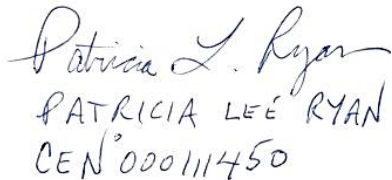 Patricia L. Ryan
PATRICIA LEE RYAN
CEN 000111450